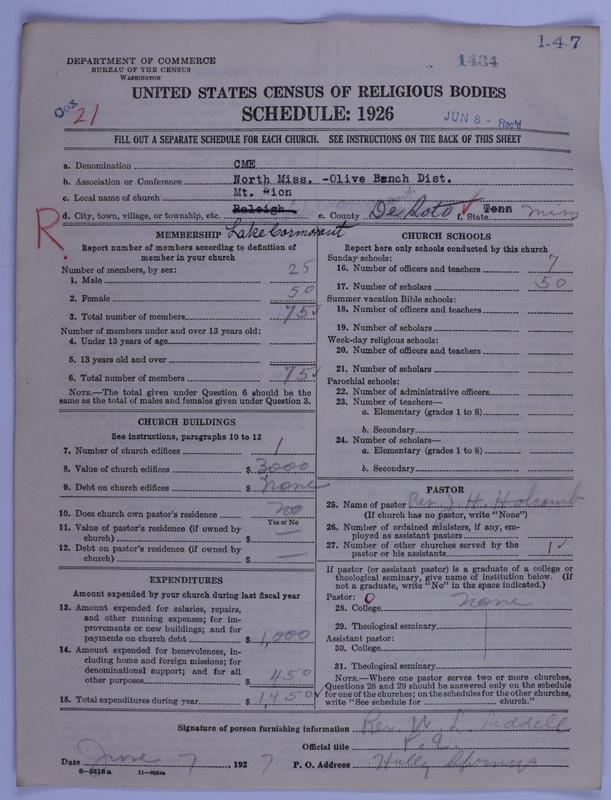 1-4-7
1434
DEPARTMENT OF COMMERCE
BUREAU OF THE CENSUS
WASHINGTON
UNITED STATES CENSUS OF RELIGIOUS BODIES
SCHEDULE: 1926
21
JUN 8 - Rec'd
FILL OUT A SEPARATE SCHEDULE FOR EACH CHURCH. SEE INSTRUCTIONS ON THE BACK OF THIS SHEET
a. Denomination CME
b. Association or Conference North Miss. -Olive Bench Dist.
c. Local name of church Mt. Zion
d. City, town, village, or township, etc. Raleigh. e. County De Soto f. State Tenn Miss
R.
Lake Cormorant
MEMBERSHIP
Report number of members according to definition of member in your church
Number of members, by sex:
1. Male 25
2. Female 50
3. Total number of members 75
Number of members under and over 13 years old:
4. Under 13 years of age
5. 13 years old and over
6. Total number of members 75
NOTE.—The total given under Question 6 should be the same as the total of males and females given under Question 3.
CHURCH BUILDINGS
See instructions, paragraphs 10 to 12
7. Number of church edifices 1
8. Value of church edifices $ 3000
9. Debt on church edifices $ none
10. Does church own pastor's residence no
Yes or No
11. Value of pastor's residence (if owned by church) $ —
12. Debt on pastor's residence (if owned by church) $ —
EXPENDITURES
Amount expended by your church during last fiscal year
13. Amount expended for salaries, repairs, and other running expenses; for improvements or new buildings; and for payments on church debt $ 1,000
14. Amount expended for benevolences, including home and foreign missions; for denominational support; and for all other purposes $ 450
15. Total expenditures during year $ 1450
CHURCH SCHOOLS
Report here only schools conducted by this church
Sunday schools:
16. Number of officers and teachers 7
17. Number of scholars 50
Summer vacation Bible schools:
18. Number of officers and teachers
19. Number of scholars
Week-day religious schools:
20. Number of officers and teachers
21. Number of scholars
Parochial schools:
22. Number of administrative officers
23. Number of teachers—
a. Elementary (grades 1 to 8)
b. Secondary
24. Number of scholars—
a. Elementary (grades 1 to 8)
b. Secondary
PASTOR
25. Name of pastor Rev. J. H. Holcomb
(If church has no pastor, write "None")
26. Number of ordained ministers, if any, employed as assistant pastors
27. Number of other churches served by the pastor or his assistants 1
If pastor (or assistant pastor) is a graduate of a college or theological seminary, give name of institution below. (If not a graduate, write "No" in the space indicated.)
Pastor: 0
28. College none
29. Theological seminary
Assistant pastor:
30. College
31. Theological seminary
NOTE.—Where one pastor serves two or more churches, Questions 28 and 29 should be answered only on the schedule for one of the churches; on the schedules for the other churches, write "See schedule for church."
Signature of person furnishing information Rev. W. L. Liddell
Official title P. E.
Date June 7, 1927 P. O. Address Holly Springs
8-5518a 11-9664a